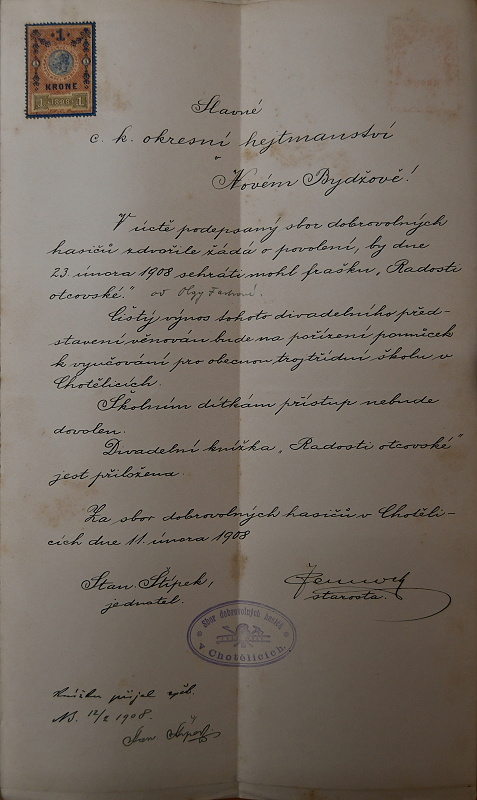 1
KRONE
1 1898 1
Slavné
c. k. okresní hejtmanství
v
Novém Bydžově!
V úctě podepsaný sbor dobrovolných
hasičů zdvořile žádá o povolení, by dne
23. února 1908 sehráti mohl frašku, „Radosti
otcovské." od Olgy
Čistý výnos tohoto divadelního před-
stavení věnován bude na pořízení pomůcek
k vyučování pro obecnou trojtřídní školu v
Chotělicích.
Školním dítkám přístup nebude
dovolen.
Divadelní knížka „Radosti otcovské"
jest přiložena.
Za sbor dobrovolných hasičů v Chotěli-
cích dne 11. února 1908
Stan. Štípek,
jednatel.
starosta.
Sbor dobrovolných hasičů
v Chotělicích.
Knížku přijal zpět.
NB. 12/2 1908.
Stan. Štípek